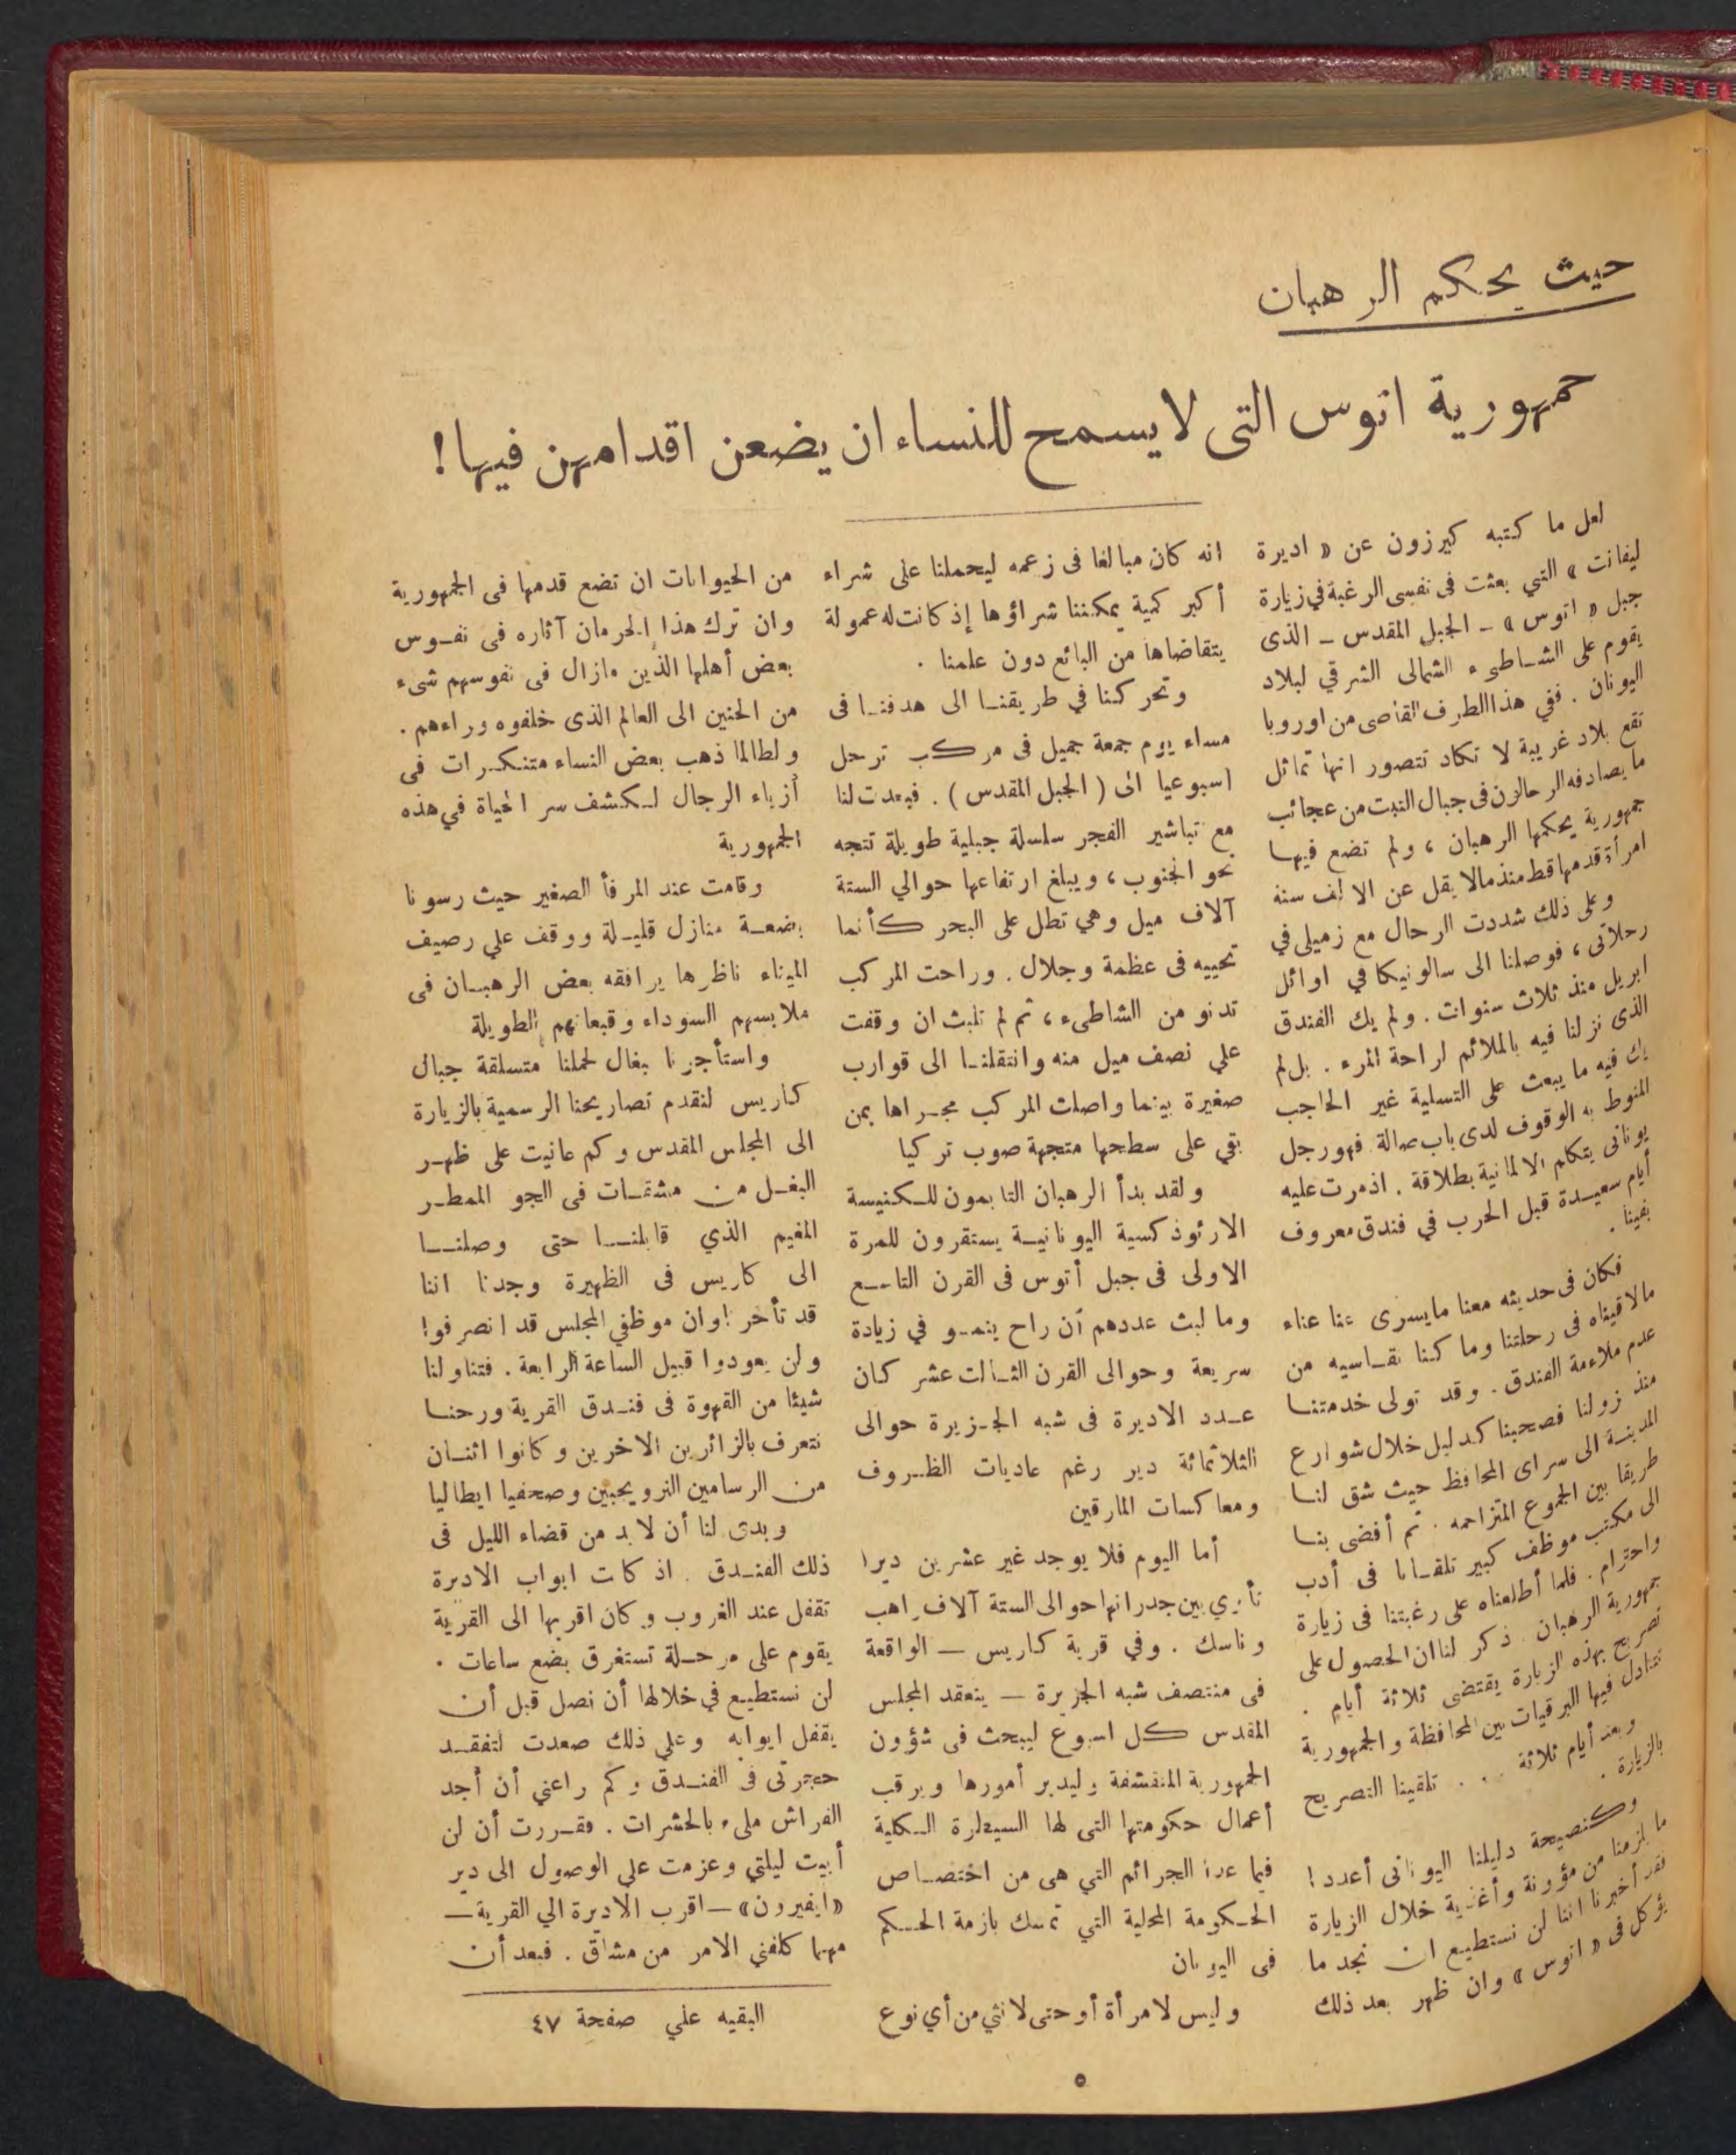 حيث يحكم الرهبان
جمهورية اتوس التى لايسمح للنساء ان يضعن اقدامهن فيها!
لعل ما كتبه كيرزون عن « اديرة
ليفانت » التي بعثت فى نفسى الرغبة في زيارة
جبل « اتوس » ــ الجبل المقدس ــ الذى
يقوم على الشاطىء الشمالى الشرقي لبلاد
اليونان . ففي هذا الطرف القاصى من اوروبا
تقع بلاد غريبة لا تكاد تتصور انها تماثل
ما يصادفه الرحالون فى جبال التبت من عجائب
جمهورية يحكمها الرهبان ، ولم تضع فيها
امرأة قدمها قط منذ مالا يقل عن الالف سنة
وعلى ذلك شددت الرحال مع زميلى في
رحلاتى ، فوصلنا الى سالونيكا في اوائل
ابريل منذ ثلاث سنوات . ولم يك الفندق
الذى نزلنا فيه بالملائم لراحة المرء . بل لم
يك فيه ما يبعث على التسلية غير الحاجب
المنوط به الوقوف لدى باب صالة . فهو رجل
يونانى يتكلم الالمانية بطلاقة . اذ مرت عليه
أيام سعيدة قبل الحرب في فندق معروف
بفينا .
فكان فى حديثه معنا ما يسرى عنا عناء
مالاقيناه فى رحلتنا وما كنا نقاسيه من
عدم ملاءمة الفندق . وقد تولى خدمتنا
منذ نزولنا فصحبنا كدليل خلال شوارع
المدينة الى سراى المحافظ حيث شق لنا
طريقا بين الجموع المتزاحمه . ثم أفضى بنا
الى مكتب موظف كبير تلقانا فى أدب
واحترام . فلما أطلعناه على رغبتنا فى زيارة
جمهورية الرهبان . ذكر لنا ان الحصول على
تصريح بهذه الزيارة يقتضى ثلاثة أيام .
تتبادل فيها البرقيات بين المحافظة والجمهورية
وبعد أيام ثلاثة . . . تلقينا التصريح
بالزيارة .
وكنصيحة دليلنا اليونانى أعددا !
ما يلزمنا من مؤونة وأغذية خلال الزيارة
فقد أخبرنا اننا لن نستطيع ان نجد ما
يؤكل فى « اتوس » وان ظهر بعد ذلك
انه كان مبالغا فى زعمه ليحملنا على شراء
أكبر كمية يمكننا شراؤها إذ كانت له عمولة
يتقاضاها من البائع دون علمنا .
وتحركنا في طريقنا الى هدفنا فى
مساء يوم جمعة جميل فى مركب ترحل
اسبوعيا الى ( الجبل المقدس ) . فبعدت لنا
مع تباشير الفجر سلسلة جبلية طويلة تتجه
نحو الجنوب ، ويبلغ ارتفاعها حوالي الستة
آلاف ميل وهي تطل على البحر كأنما
تحييه فى عظمة وجلال . وراحت المركب
تدنو من الشاطىء ، ثم لم تلبث ان وقفت
علي نصف ميل منه وانتقلنا الى قوارب
صغيرة بينما واصلت المركب مجراها بمن
بقي على سطحها متجهة صوب تركيا
ولقد بدأ الرهبان التابعون للكنيسة
الارثوذكسية اليونانية يستقرون للمرة
الاولى فى جبل أتوس فى القرن التاسع
وما لبث عددهم أن راح ينمو في زيادة
سريعة وحوالى القرن الثالث عشر كان
عدد الاديرة فى شبه الجزيرة حوالى
الثلاثمائة دير رغم عاديات الظروف
ومعاكسات المارقين
أما اليوم فلا يوجد غير عشرين ديرا
تأوي بين جدرانها حوالى الستة آلاف راهب
وناسك . وفي قرية كاريس ــ الواقعة
فى منتصف شبه الجزيرة ــ ينعقد المجلس
المقدس كل اسبوع ليبحث فى شؤون
الجمهورية المتقشفة وليدبر أمورها ويرقب
أعمال حكومتها التى لها السيطرة الكلية
فيما عدا الجرائم التي هى من اختصاص
الحكومة المحلية التي تمسك بازمة الحكم
فى اليونان
وليس لامرأة أو حتى لانثي من أي نوع
من الحيوانات ان تضع قدمها فى الجمهورية
وان ترك هذا الحرمان آثاره فى نفوس
بعض أهلها الذين مازال فى نفوسهم شىء
من الحنين الى العالم الذى خلفوه وراءهم .
ولطالما ذهب بعض النساء متنكرات فى
أزياء الرجال لكشف سر الحياة في هذه
الجمهورية
وقامت عند المرفأ الصغير حيث رسونا
بضعة منازل قليلة ووقف علي رصيف
الميناء ناظرها يرافقه بعض الرهبان فى
ملابسهم السوداء وقبعاتهم الطويلة
واستأجرنا بغال لحملنا متسلقة جبال
كاريس لنقدم تصاريحنا الرسمية بالزيارة
الى المجلس المقدس وكم عانيت على ظهر
البغل من مشقات فى الجو الممطر
المغيم الذي قابلنا حتى وصلنا
الى كاريس فى الظهيرة وجدنا اننا
قد تأخرنا وان موظفي المجلس قد انصرفوا
ولن يعودوا قبيل الساعة الرابعة . فتناولنا
شيئا من القهوة فى فندق القرية ورحنا
نتعرف بالزائرين الاخرين وكانوا اثنان
من الرسامين النرويجيين وصحفيا ايطاليا
وبدى لنا أن لا بد من قضاء الليل فى
ذلك الفندق . اذ كانت ابواب الاديرة
تقفل عند الغروب وكان اقربها الى القرية
يقوم على مرحلة تستغرق بضع ساعات .
لن نستطيع في خلالها أن نصل قبل أن
يقفل ابوابه وعلي ذلك صعدت لتفقد
حجرتى فى الفندق وكم راعني أن أجد
الفراش ملىء بالحشرات . فقررت أن لن
أبيت ليلتي وعزمت علي الوصول الى دير
«ايفيرون» ــ اقرب الاديرة الي القرية ــ
مهما كلفني الامر من مشاق . فبعد أن
البقيه علي صفحة ٤٧
٥